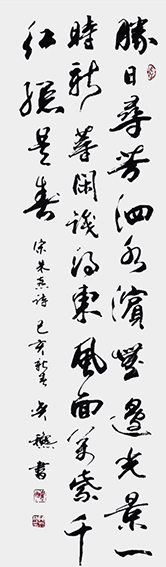 勝日尋芳泗水濱無邊光景一
時新等閑識得東風面萬紫千
紅總是春 宋朱熹詩 己亥 書